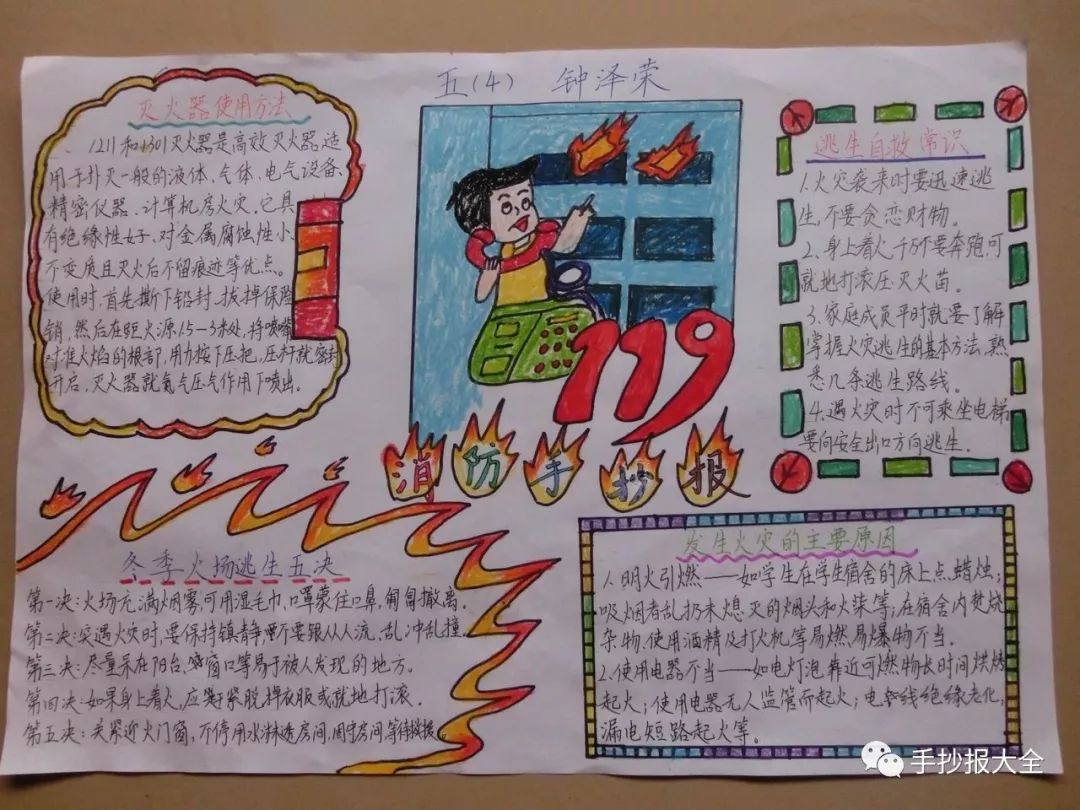 五(4) 钟泽荣
灭火器使用方法
1211和1301灭火器是高效灭火器适
用于扑灭一般的液体、气体、电气设备、
精密仪器、计算机房火灾。它具
有绝缘性好、对金属腐蚀性小、
不变质且灭火后不留痕迹等优点。
使用时,首先撕下铅封、拔掉保险
销,然后在距火源1.5-3米处,将喷嘴
对准火焰的根部,用力按下压把,压杆就密封
开启,灭火器就氮气压气作用下喷出。
119
消防手抄报
逃生自救常识
1.火灾袭来时要迅速逃
生,不要贪恋财物。
2.身上着火千万不要奔跑可
就地打滚压灭火苗。
3.家庭成员平时就要了解
掌握火灾逃生的基本方法,熟
悉几条逃生路线。
4.遇火灾时不可乘坐电梯
要向安全出口方向逃生.
冬季火场逃生五决
第一决:火场充满烟雾,可用湿毛巾,口罩蒙住口鼻,匍匐撤离。
第二决:突遇火灾时,要保持镇静不要跟从人流,乱冲乱撞。
第三决:尽量呆在阳台、窗口等易于被人发现的地方。
第四决:如果身上着火,应赶紧脱掉衣服或就地打滚.
第五决:关紧迎火门窗,不停用水淋透房间,固守房间,等待救援。
发生火灾的主要原因
1.明火引燃——如学生在学生宿舍的床上点蜡烛;
吸烟者乱扔未熄灭的烟头和火柴等;在宿舍内焚烧
杂物.使用酒精及打火机等易燃易爆物不当.
2.使用电器不当——如电灯泡靠近可燃物长时间烘烤
起火;使用电器无人监管而起火;电线绝缘老化,
漏电短路起火等。
手抄报大全